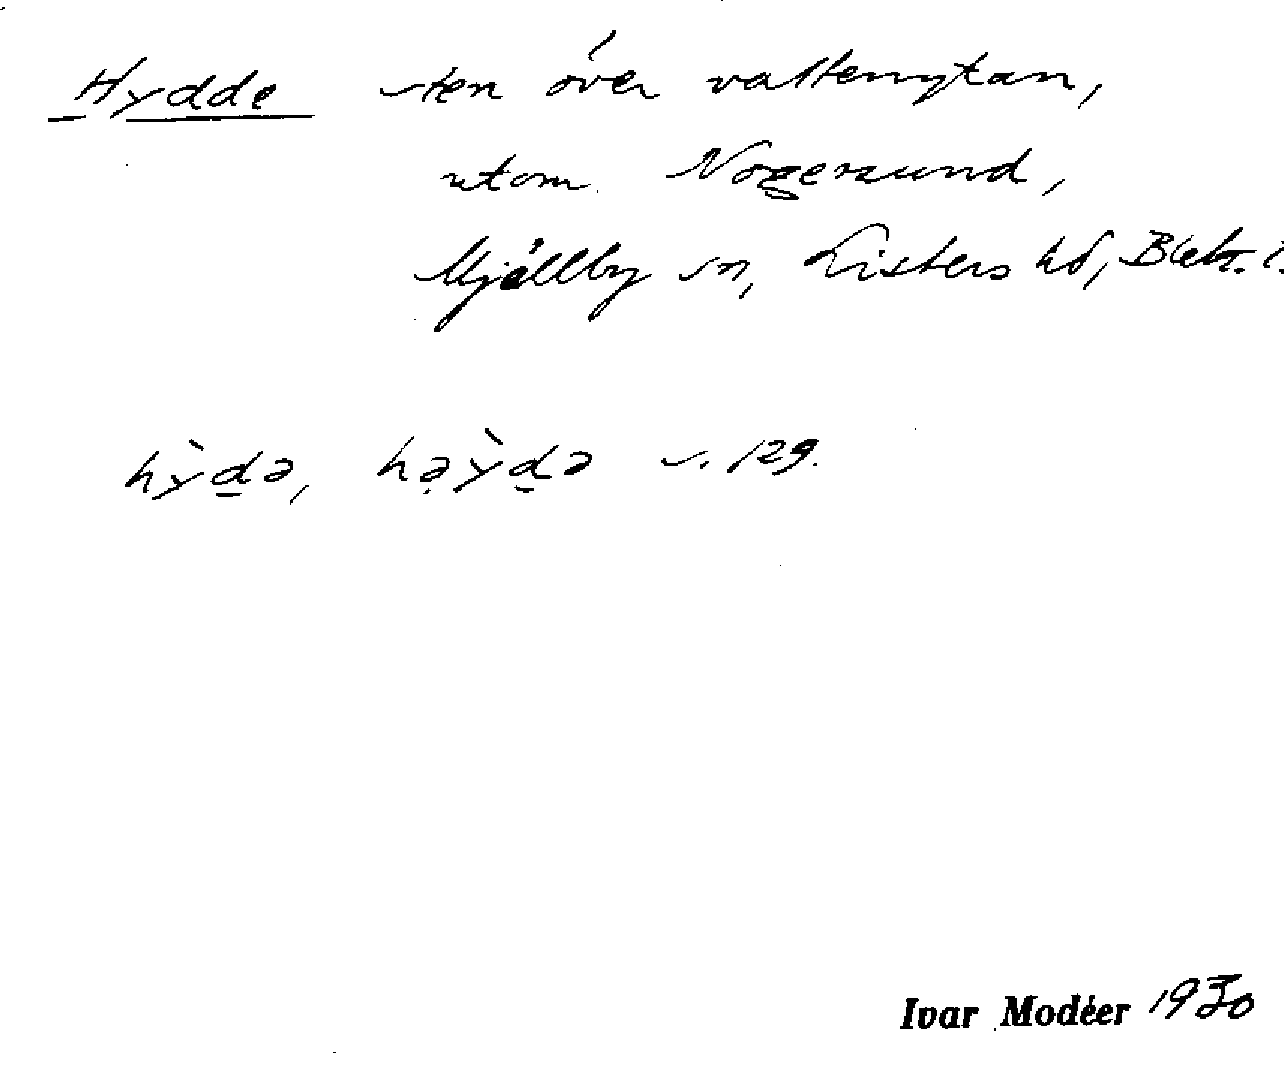 Hydde sten över vattenytan,
utom Nogersund,
Mjällby sn, Listers hd, Blek. l.
hỳd̲ə, hạỳd̲ə s. 129.
Ivar Modéer 1930